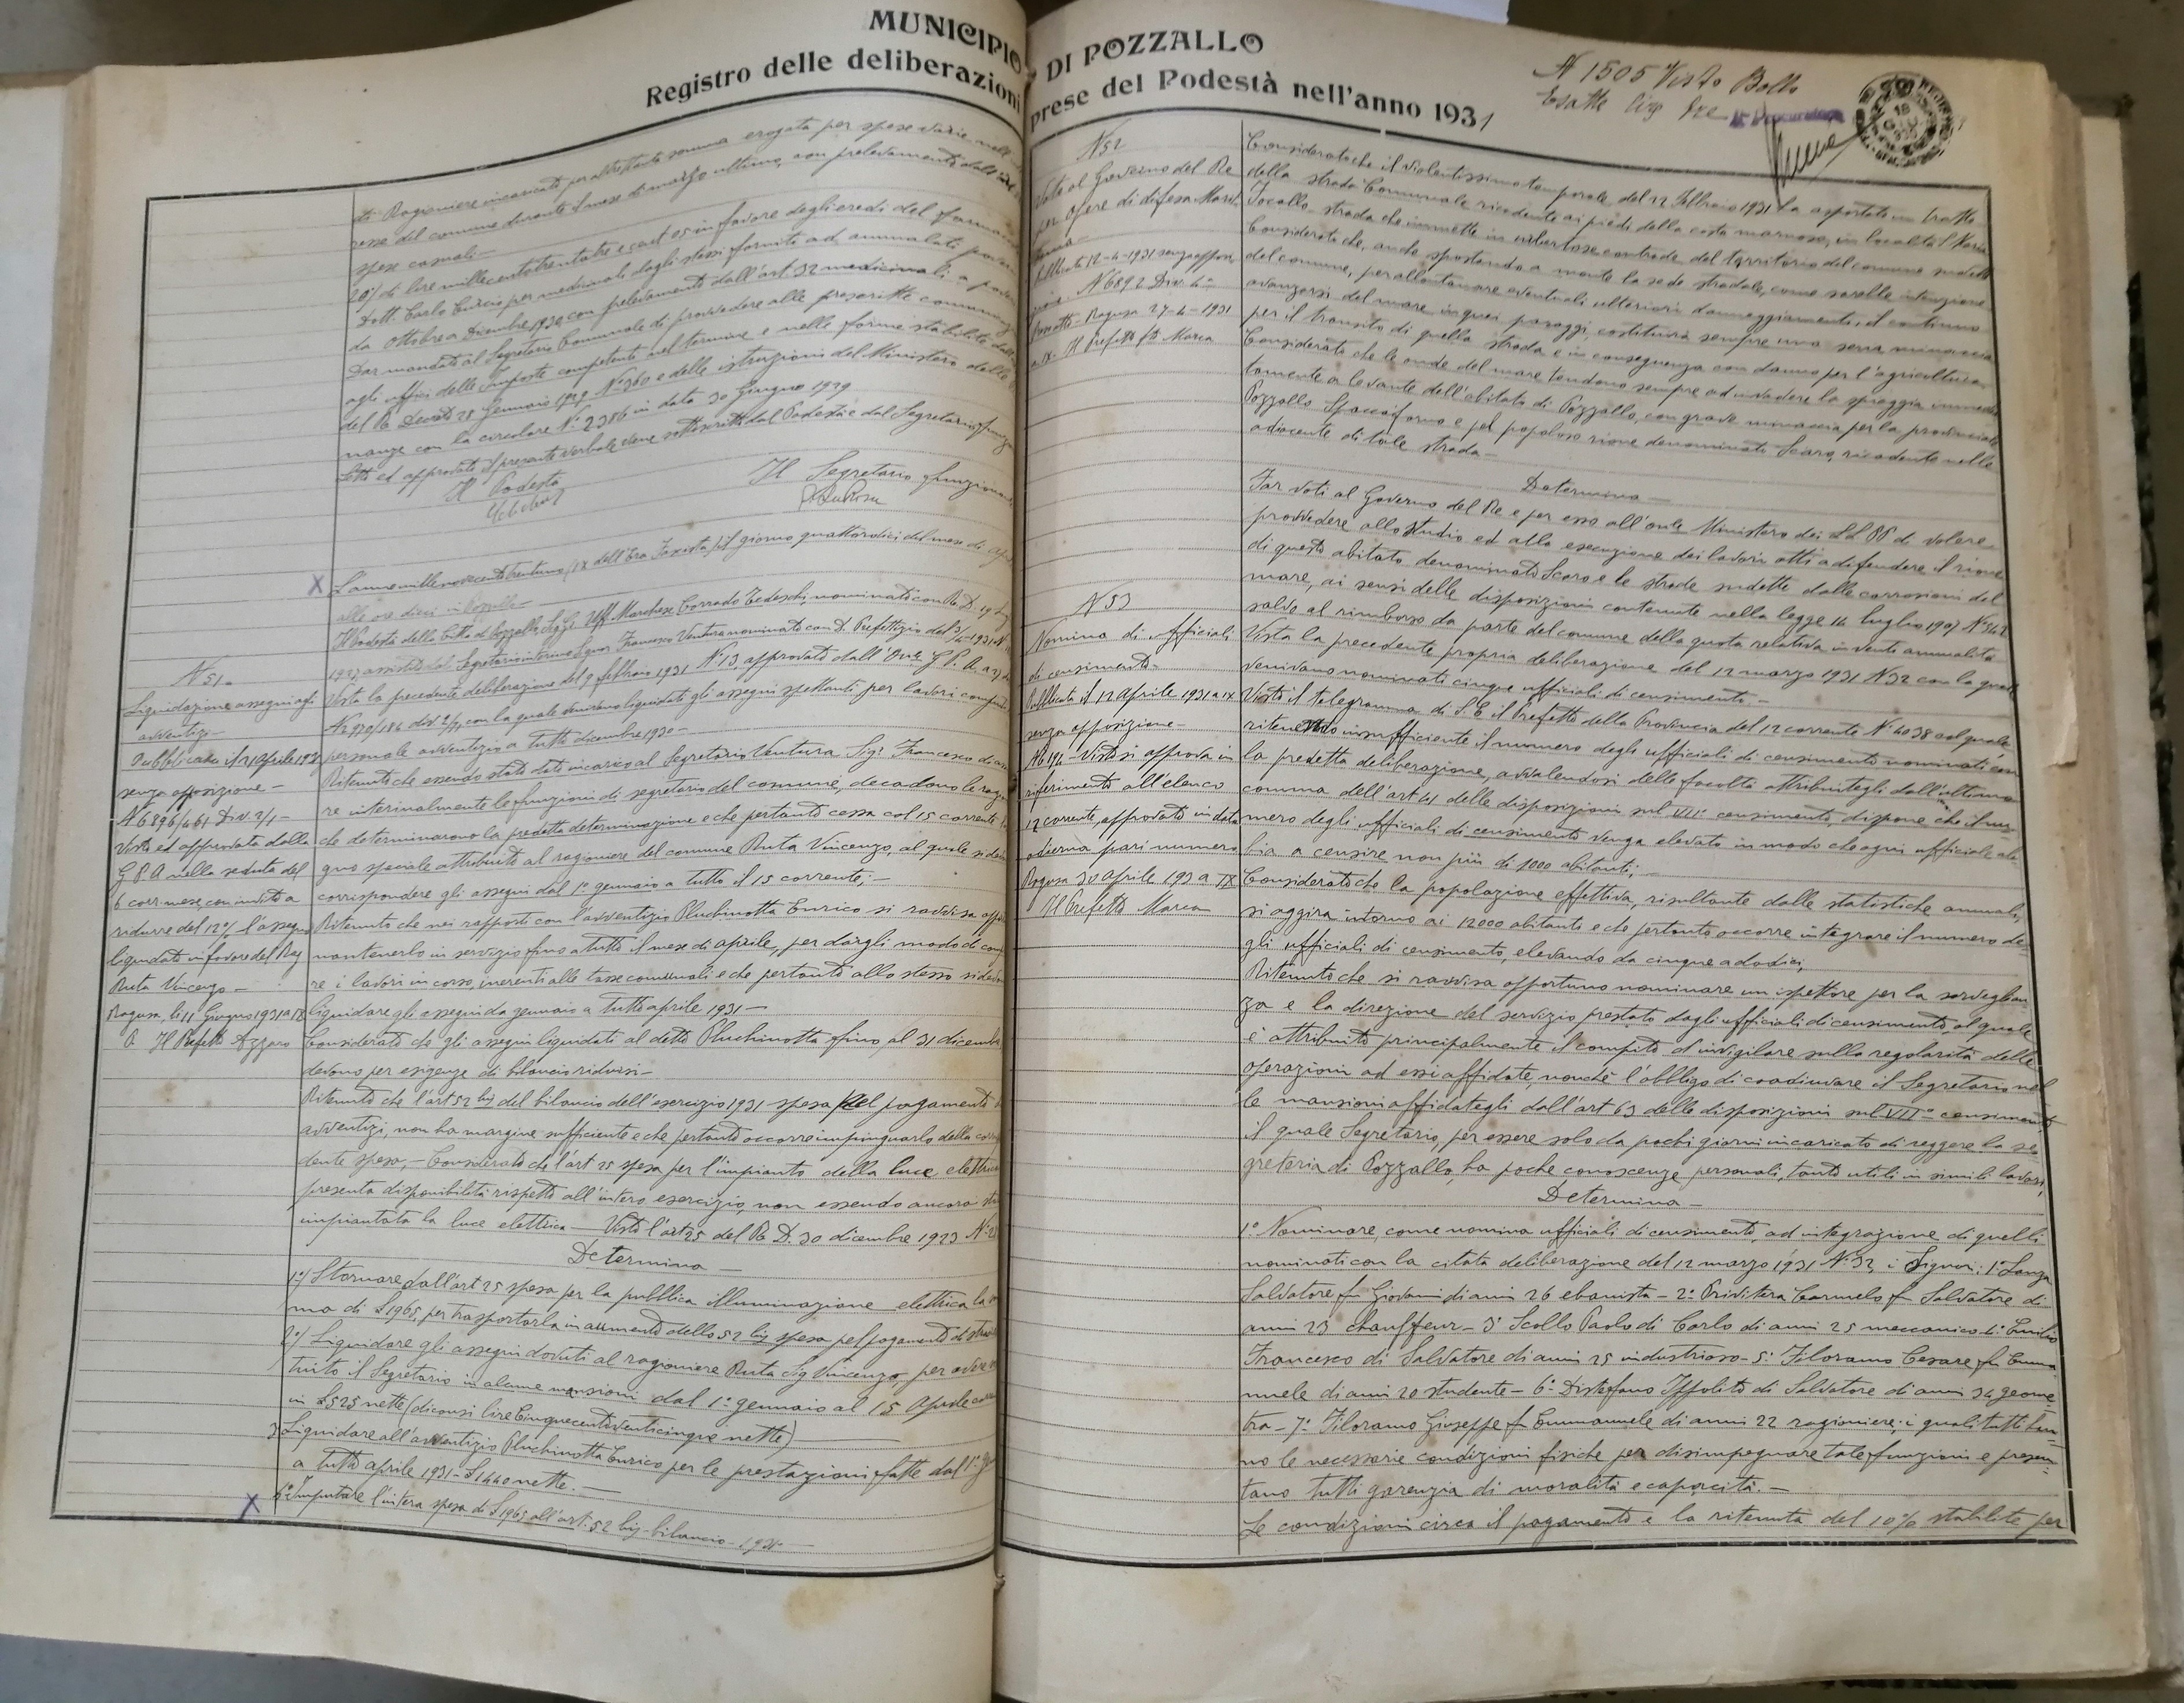 MUNICIPIO DI POZZALLO
Registro delle deliberazioni prese del Podestà nell'anno 1931
N 1505 Visto Bollo
Esatte lire tre
Il Procuratore
di Ragioniere incaricato per altrettanta somma erogata per spese varie nell'
resse del comune durante il mese di marzo ultimo, con prelevamento dall'art
spese casuali—
20) di lire millecentotrentatre e cent 25 in favore degli eredi del farmacista
Dott. Carlo Curcio per medicinali dagli stessi forniti ad ammalati poveri
da Ottobre a Dicembre 1930, con prelevamento dall'art. 32 medicinali a poveri
Dar mandato al Segretario Comunale di provvedere alle prescritte comunicaz
agli uffici delle Imposte competente nel termine e nelle forme stabilite dall'
del R. Decreto 28 Gennaio 1929 N° 360 e delle istruzioni del Ministero delle
nanze con la circolare N° 2386 in data 30 Giugno 1929
Letto ed approvato il presente verbale viene sottoscritto dal Podestà e dal Segretario funzio
Il Podestà
Il Segretario funzionante
X L'anno millenovecentotrentuno/IX dell'Era Fascista, il giorno quattordici del mese di Aprile
alle ore dieci in Pozzallo—
Il Podestà della Città di Pozzallo, Sig. Gr. Uff. Marchese Corrado Tedeschi, nominato con R. D.
1927, assistito dal Segretario interino Signor Francesco Ventura nominato con D. Prefettizio del 3/4-1931 N
N 51.
Liquidazione assegni agli
avventizi—
Pubblicata il 21 Aprile 1931
senza opposizione—
N 6896/461 Div. 2/1—
Vista ed approvata dalla
G P A nella seduta del
6 corr. mese, con invito a
ridurre del 12% l'assegno
liquidato in favore del Rag
Ruta Vincenzo—
Ragusa, li 11 Giugno 1931 a IX
p. Il Prefetto Azzaro
Vista la precedente deliberazione del 9 febbraio 1931 N. 13, approvata dall'On.le G. P. A. a 27
con la quale venivano liquidati gli assegni spettanti per lavori compiuti
personale avventizio a tutto dicembre 1930—
Ritenuto che essendo stato dato incarico al Segretario Ventura Sig. Francesco di
re interinalmente le funzioni di segretario del comune, decadono le ragi
che determinarono la predetta determinazione e che pertanto cessa col 15 corrente
gno speciale attribuito al ragioniere del comune Ruta Vincenzo, al quale si deve
corrispondere gli assegni dal 1° gennaio a tutto il 15 corrente;—
Ritenuto che nei rapporti con l'avventizio Pluchinotta Enrico si ravvisa oppor
mantenerlo in servizio fino a tutto il mese di aprile, per dargli modo di com
re i lavori in corso, inerenti alle tasse comunali e che pertanto allo stesso si devono
liquidare gli assegni da gennaio a tutto aprile 1931—
Considerato che gli assegni liquidati al detto Pluchinotta fino al 31 dicembre
devono per esigenze di bilancio ridursi—
Ritenuto che l'art 52 bis del bilancio dell'esercizio 1931 spesa pel pagamento
avventizi, non ha margine sufficiente e che pertanto occorre impinguarlo della corrispon
dente spesa;— Considerato che l'art 25 spesa per l'impianto della luce elettrica
presenta disponibilità rispetto all'intero esercizio, non essendo ancora stata
impiantata la luce elettrica— Visto l'art 25 del R. D. 30 dicembre 1923 N. 2
Determina—
1°) Stornare dall'art 25 spesa per la pubblica illuminazione elettrica la som
ma di £ 1965, per trasportarla in aumento dello 52 bis spesa pel pagamento di
2°) Liquidare gli assegni dovuti al ragioniere Ruta Sig Vincenzo, per avere
tuito il Segretario in alcune mansioni dal 1° gennaio al 15 Aprile corr
in £ 525 nette (diconsi lire Cinquecentoventicinque nette)
3° Liquidare all'avventizio Pluchinotta Enrico per le prestazioni fatte dal 1° gen
a tutto aprile 1931- £ 1440 nette.—
X 4° Imputare l'intera spesa di £ 1965 all'art. 52 bis bilancio 1931—
N 52
Voto al Governo del Re
per opere di difesa Marit
tima—
Pubblicata 12-4-1931 senza opposi
zione. N 6892 Div. 4—
Ragusa 27-4-1931
a. IX. Il Prefetto fto Marca
Considerato che il violentissimo temporale del 22 Febbraio 1931 ha asportato un tratto
della strada Comunale ricadente ai piedi della costa marnosa, in località S. Maria
Focallo, strada che immette in ubertose contrade del territorio del comune sudetto
Considerato che, anche spostando a monte la sede stradale, come sarebbe intenzione
del comune, per allontanare eventuali ulteriori danneggiamenti, il continuo
avanzarsi del mare in quei paraggi, costituirà sempre una seria minaccia
per il transito di quella strada e in conseguenza con danno per l'agricoltura
Considerato che le onde del mare tendono sempre ad invadere la spiaggia immedia
tamente a levante dell'abitato di Pozzallo, con grave minaccia per la provinciale
Pozzallo Spaccaforno e pel popoloso rione denominato Scaro, ricadente nelle
adiacente di tale strada—
Determina—
Far voti al Governo del Re e per esso all'on.le Ministero dei LL PP di volere
provvedere allo studio ed alla esecuzione dei lavori atti a difendere il rione
di questo abitato denominato Scaro e le strade sudette dalle corrosioni del
mare, ai sensi delle disposizioni contenute nella legge 14 luglio 1907 N 542
salvo al rimborso da parte del comune della quota relativa in venti annualità
N 53
Nomina di ufficiali
di censimento—
Pubblicata il 12 Aprile 1931 a IX
senza opposizione—
Visto si approva in
riferimento all'elenco
12 corrente, approvato in data
odierna pari numero
Ragusa 30 Aprile 193 a IX
Il Prefetto Marca
Vista la precedente propria deliberazione del 12 marzo 1931 N 32 con la quale
venivano nominati cinque ufficiali di censimento.—
Visto il telegramma di S. E. il Prefetto della Provincia del 12 corrente N 4038 col quale
ritenendo insufficiente il numero degli ufficiali di censimento nominati con
la predetta deliberazione, avvalendosi delle facoltà attribuitegli dall'ultimo
comma dell'art 41 delle disposizioni sul VII° censimento, dispone che il nu-
mero degli ufficiali di censimento venga elevato in modo che ogni ufficiale ab
bia a censire non più di 1000 abitanti;—
Considerato che la popolazione effettiva, risultante dalle statistiche annuali,
si aggira intorno ai 12000 abitanti e che pertanto occorre integrare il numero de-
gli ufficiali di censimento, elevando da cinque a dodici;
Ritenuto che si ravvisa opportuno nominare un ispettore per la sorveglian
za e la direzione del servizio prestato dagli ufficiali di censimento al quale
è attribuito principalmente il compito d'invigilare sulla regolarità delle
operazioni ad essi affidate, nonchè l'obbligo di coadiuvare il Segretario nel
le mansioni affidategli dall'art 63 delle disposizioni sul VII° censimento
il quale Segretario, per essere solo da pochi giorni incaricato di reggere la se-
greteria di Pozzallo, ha poche conoscenze personali, tanto utili in simili lavori,
Determina—
1° Nominare, come nomina ufficiali di censimento, ad integrazione di quelli
nominati con la citata deliberazione del 12 marzo 1931 N. 32, i Signori: 1° Lanza
Salvatore fu Giovanni di anni 26 ebanista- 2° Privitera Carmelo fu Salvatore di
anni 23 chauffeur- 3° Scollo Paolo di Carlo di anni 25 meccanico 4°
Francesco di Salvatore di anni 25 industrioso- 5° Filoramo Cesare fu Emma
nuele di anni 20 studente- 6° Distefano Ippolito di Salvatore di anni 34 geome-
tra- 7° Filoramo Giuseppe fu Emmanuele di anni 22 ragioniere; i quali tutti han-
no le necessarie condizioni fisiche per disimpegnare tale funzioni e presen-
tano tutti garenzia di moralità e capacità.—
Le condizioni circa il pagamento e la ritenuta del 10% stabilite per